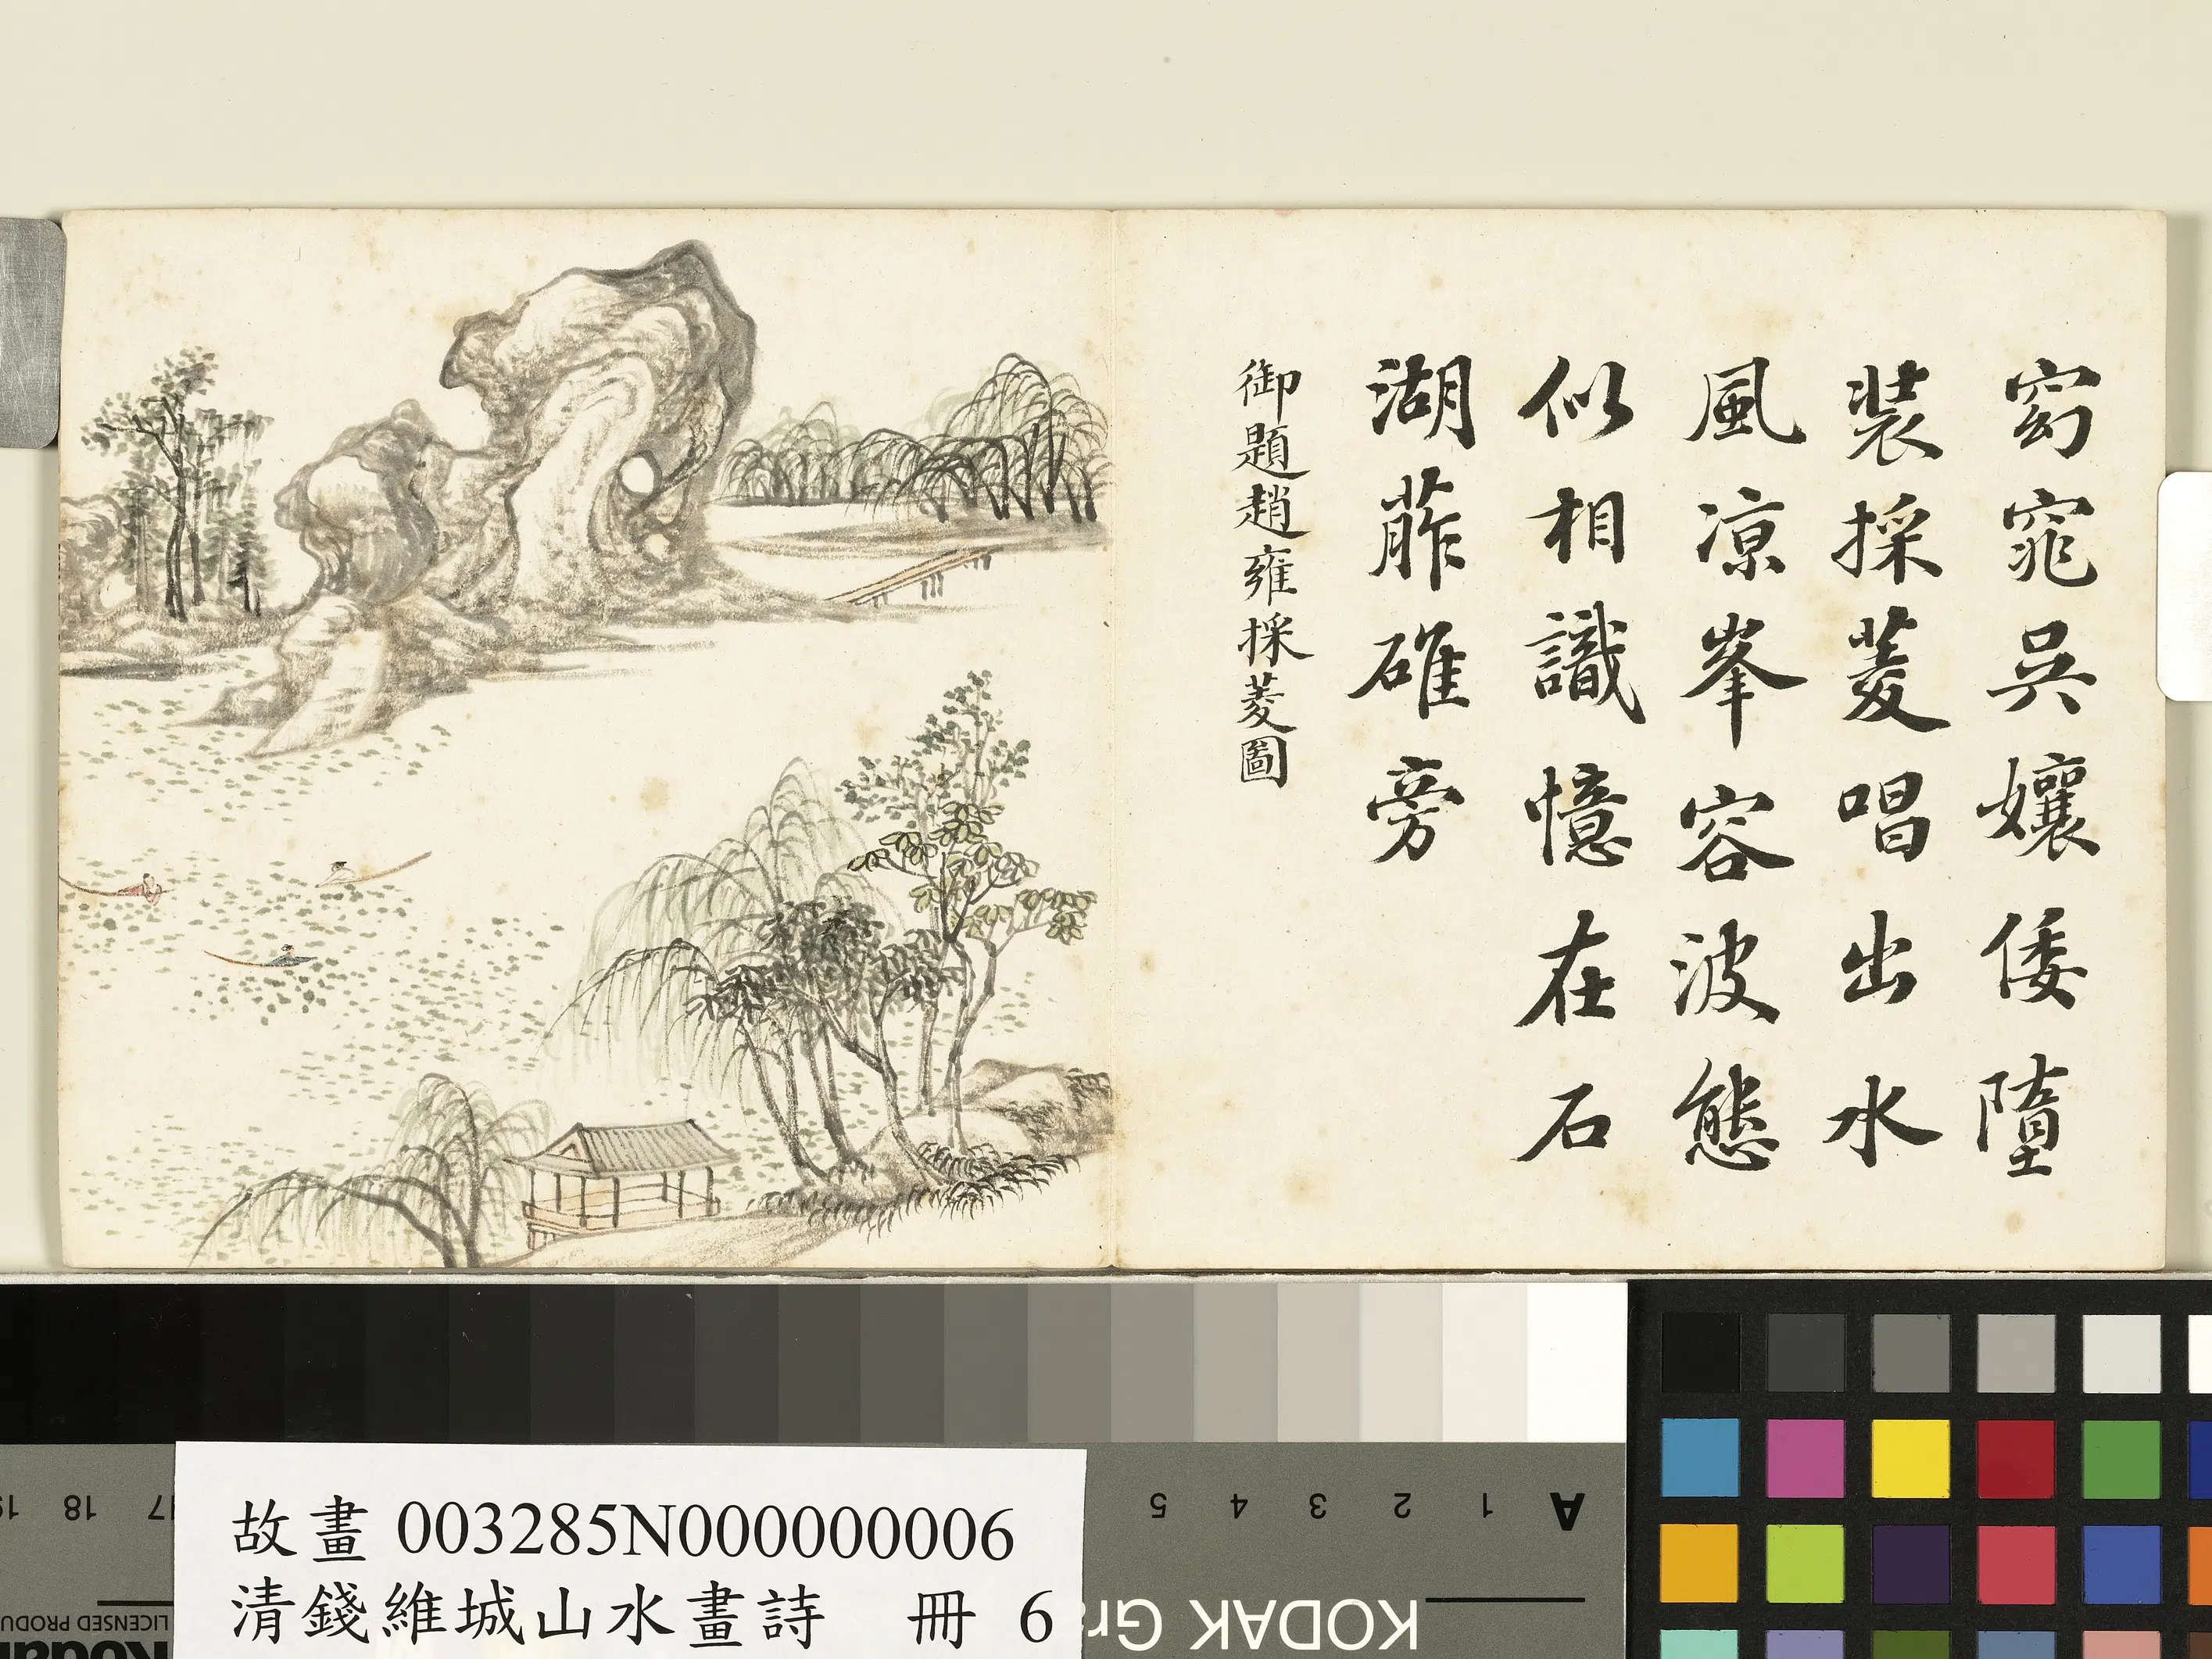 窈窕吳孃倭墮
裝採菱唱出水
風凉峯容波態
似相識憶在石
湖葄碓旁
御題趙雍採菱圖
故畫 003285N000000006
清錢維城山水畫詩 冊 6
A 1 2 3 4 5
17 18 19
KODAK Gr
LICENSED PRODU